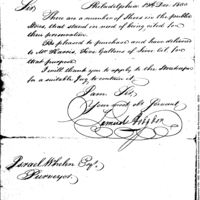 Philadelphia 19th Dec. 1800
Sir,
There are a number of Hoes in the public
Store, that stand in need of being oiled for
their preservation.
Be pleased to purchase and have delivered
to Mr Harris, Five Gallons of Linseed Oil for
that purpose.
I will thank you to apply to the Storekeeper
for a suitable Keg to contain it.
I am Sir,
Your most Obt Servant
Samuel Hodgdon
Israel Whelen Esqr.
Purveyor.